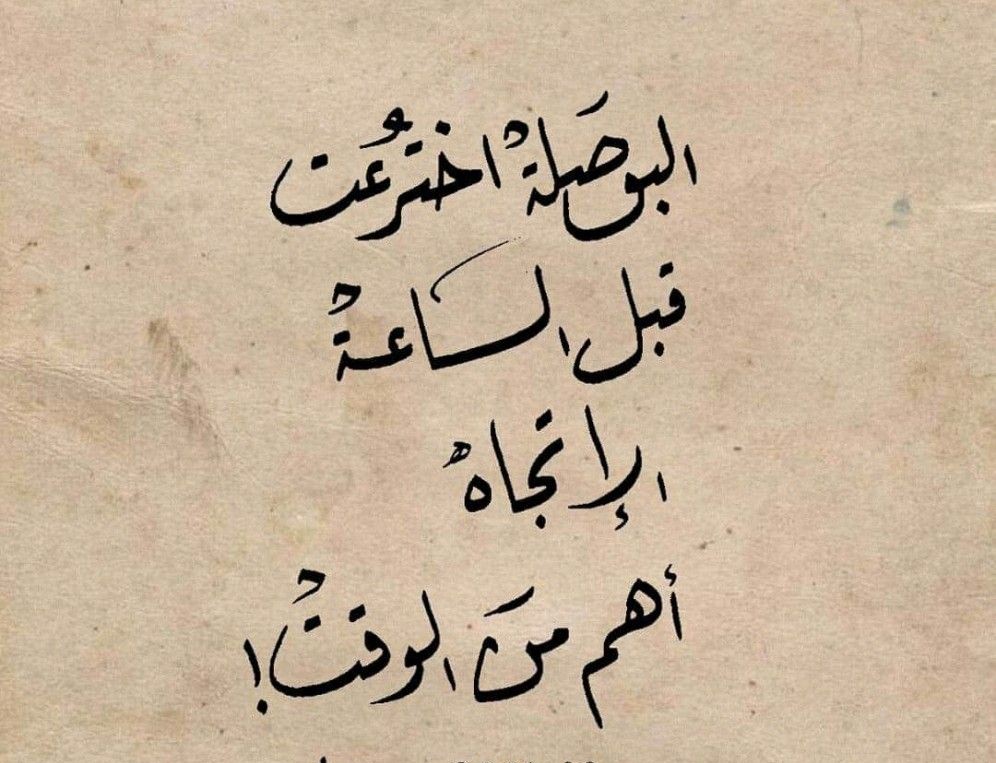 البوصَلةْ اخترُعت
قبل السَاعةْ
الإتجاهْ
أهم منَ الوقتْ!